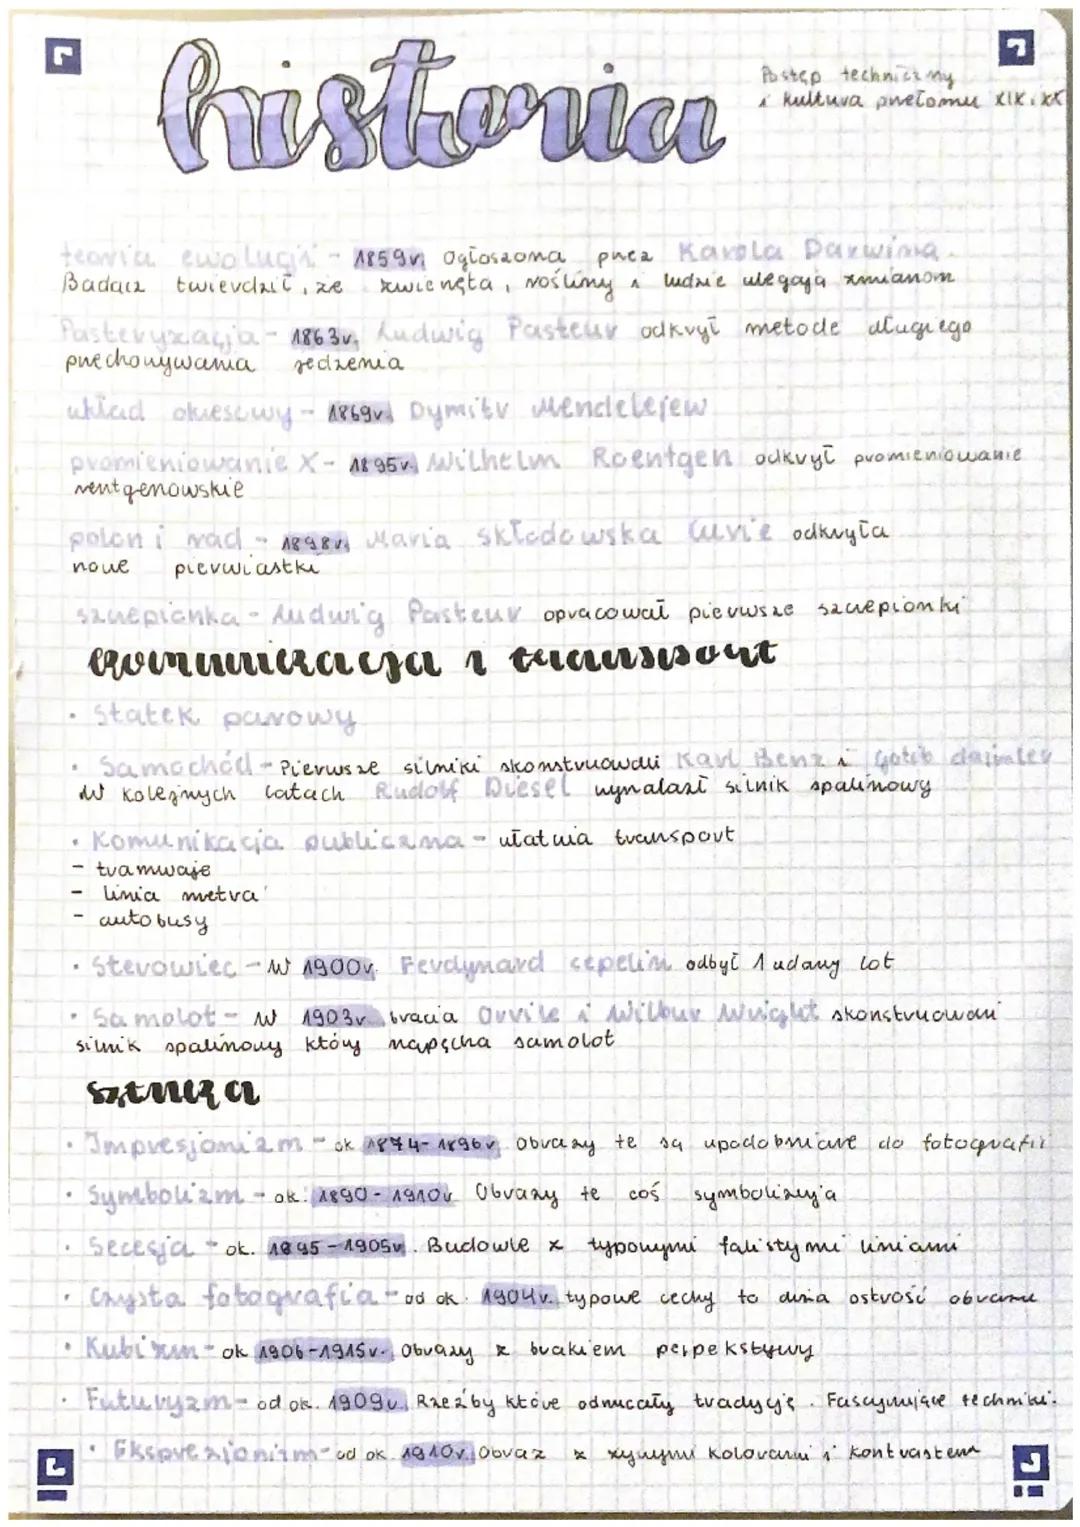 historia
Postęp techniczny
i kultura przełomu XIX i XX
teoria ewolucji - 1859r. ogłoszona przez Karola Darwina.
Badacz twierdził, że zwierzęta, rośliny i ludzie ulegają zmianom
Pasteryzacja - 1863r. Ludwig Pasteur odkrył metode długiego
przechowywania jedzenia
układ okresowy - 1869r. Dymitr Mendelejew
promieniowanie X - 1895r. Wilhelm Roentgen odkrył promieniowanie
rentgenowskie
polon i rad - 1898r. Maria Skłodowska Curie odkryła
nowe pierwiastki
szczepionka - Ludwig Pasteur opracował pierwsze szczepionki
komunikacja i transport
• Statek parowy
• Samochód - Pierwsze silniki skonstruowali Karl Benz i Gotib daimler
W kolejnych latach Rudolf Diesel wynalazł silnik spalinowy
• Komunikacja publiczna - ułatwia transport
- tramwaje
- linia metra
- autobusy
• Sterowiec - W 1900r. Ferdynard cepelin odbył 1 udany lot
• Samolot - W 1903r. bracia Orvile i Wilbur Wright skonstruowali
silnik spalinowy który napęcha samolot
sztuka
• Impresjonizm - ok 1874-1896r. Obrazy te są upodobniane do fotografii
• Symbolizm - ok. 1890-1910r Obrazy te coś symbolizują
• Secesja - ok. 1895-1905r. Budowle z typowymi falistymi liniami
• Czysta fotografia - od ok. 1904r. typowe cechy to duża ostrość obrazu
• Kubizm - ok 1906-1915r. Obrazy z brakiem perpekstywy
• Futuryzm - od ok. 1909r. Rzeźby które odrzucały tradycję. Fascynujące techniki.
• Ekspresjonizm - od ok. 1910r. Obraz z żywymi kolorami i kontrastem